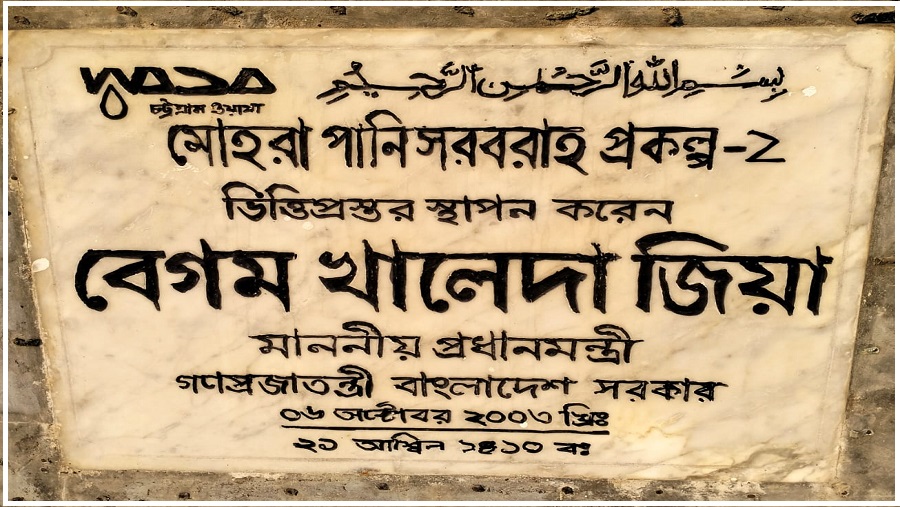 WASA
بسم الله الرحمن الرحيم
চট্টগ্রাম ওয়াসা
মোহরা পানি সরবরাহ প্রকল্প-2
ভিত্তিপ্রস্তর স্থাপন করেন
বেগম খালেদা জিয়া
মাননীয় প্রধানমন্ত্রী
গণপ্রজাতন্ত্রী বাংলাদেশ সরকার
০৬ অক্টোবর ২০০৩ খ্রিঃ
২১ আশ্বিন ১৪১০ বঃ